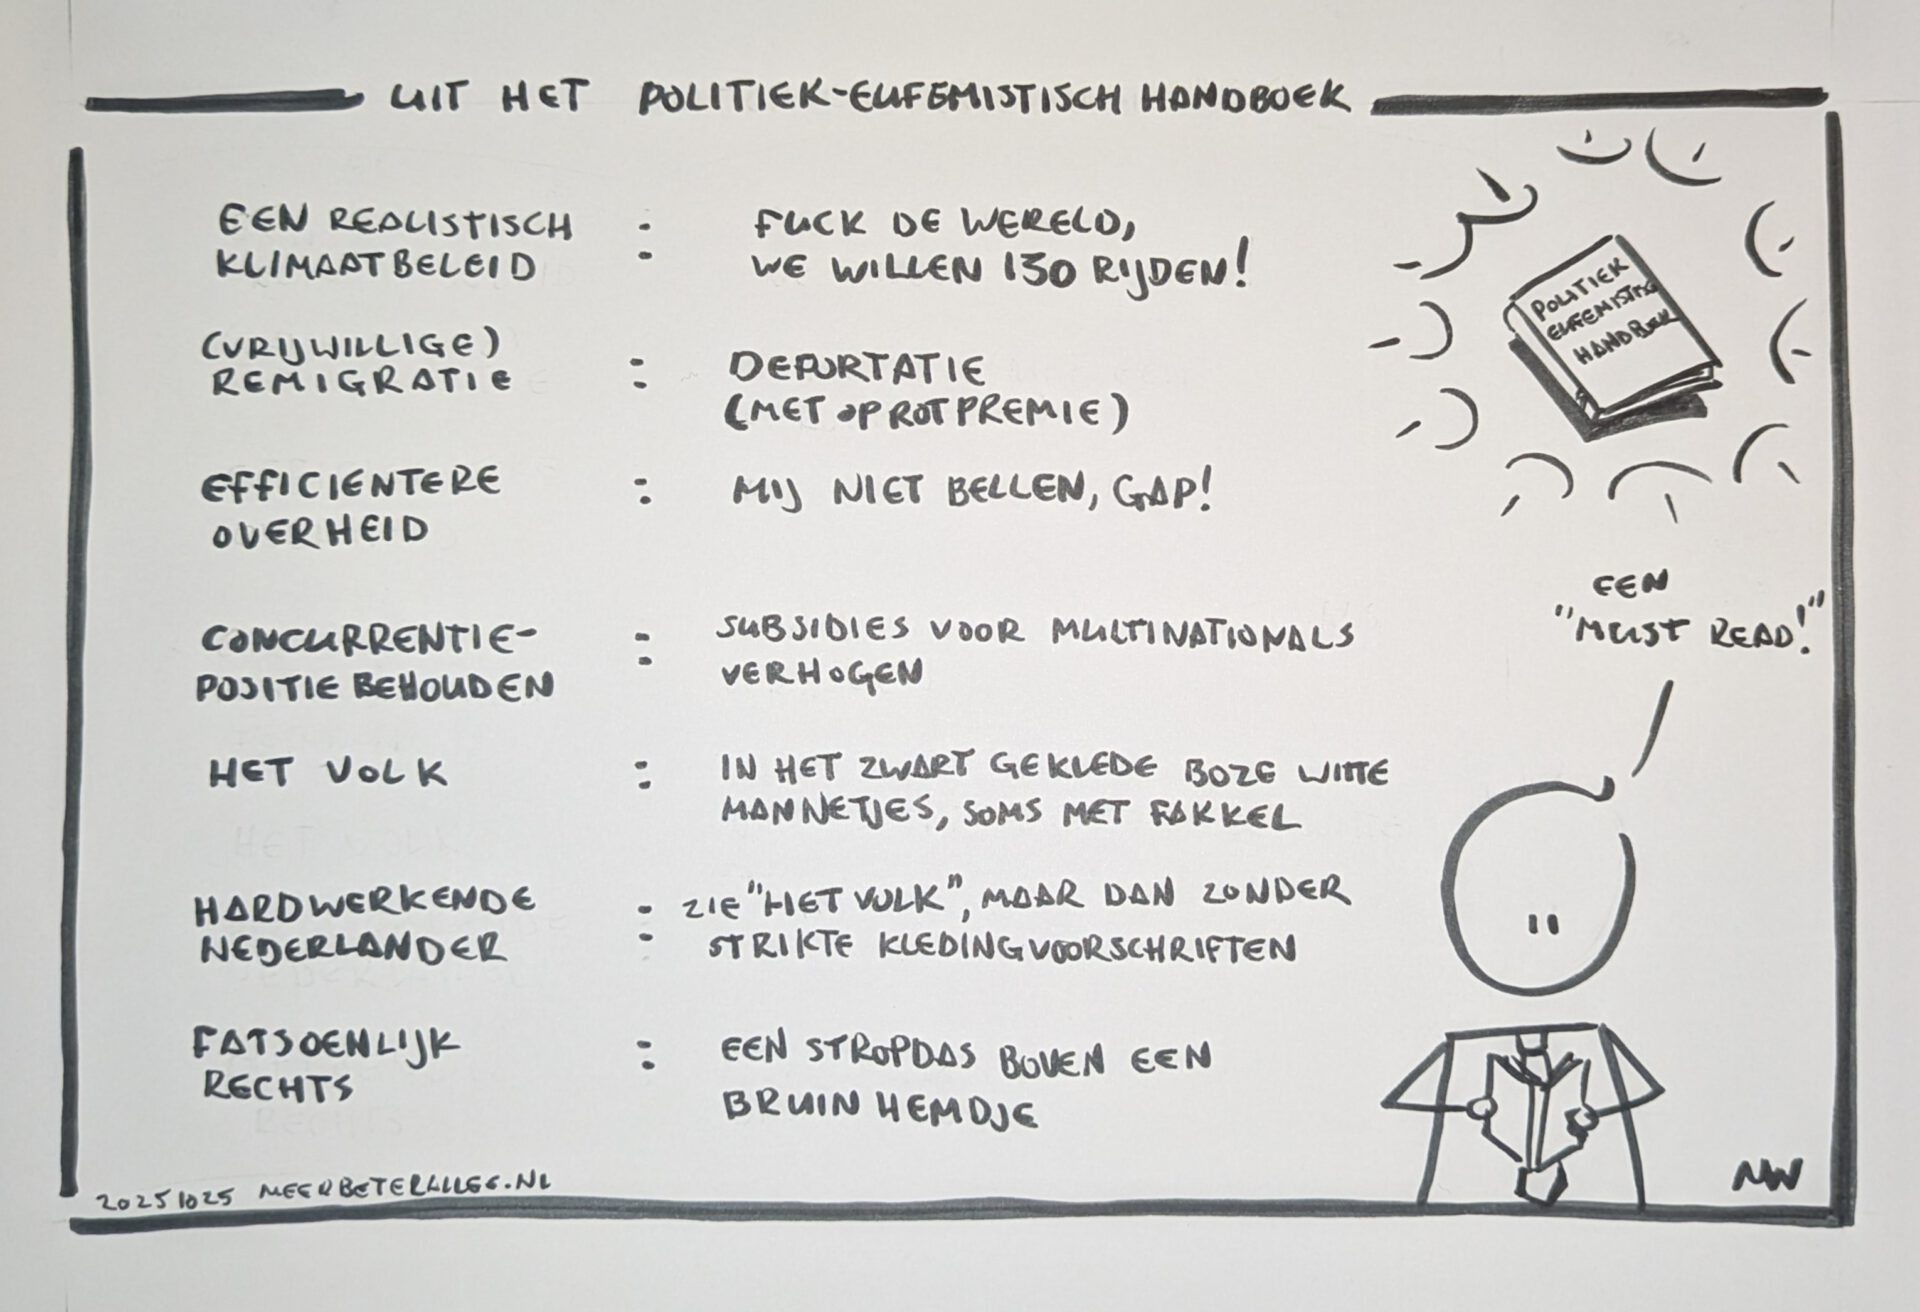 UIT HET POLITIEK-EUFEMISTISCH HANDBOEK
EEN REALISTISCH : FUCK DE WERELD,
KLIMAATBELEID WE WILLEN 130 RIJDEN!
(VRIJWILLIGE)
REMIGRATIE : DEPORTATIE
(MET OPROTPREMIE)
EFFICIENTERE : MIJ NIET BELLEN, GAP!
OVERHEID
CONCURRENTIE- : SUBSIDIES VOOR MULTINATIONALS
POSITIE BEHOUDEN VERHOGEN
HET VOLK : IN HET ZWART GEKLEDE BOZE WITTE
MANNETJES, SOMS MET FAKKEL
HARDWERKENDE : ZIE "HET VOLK", MAAR DAN ZONDER
NEDERLANDER STRIKTE KLEDINGVOORSCHRIFTEN
FATSOENLIJK : EEN STROPDAS BOVEN EEN
RECHTS BRUIN HEMDJE
POLITIEK
EUFEMISTISC
HANDBOEK
EEN
"MUST READ!"
20251025 MEERBETERALLES.NL
NW